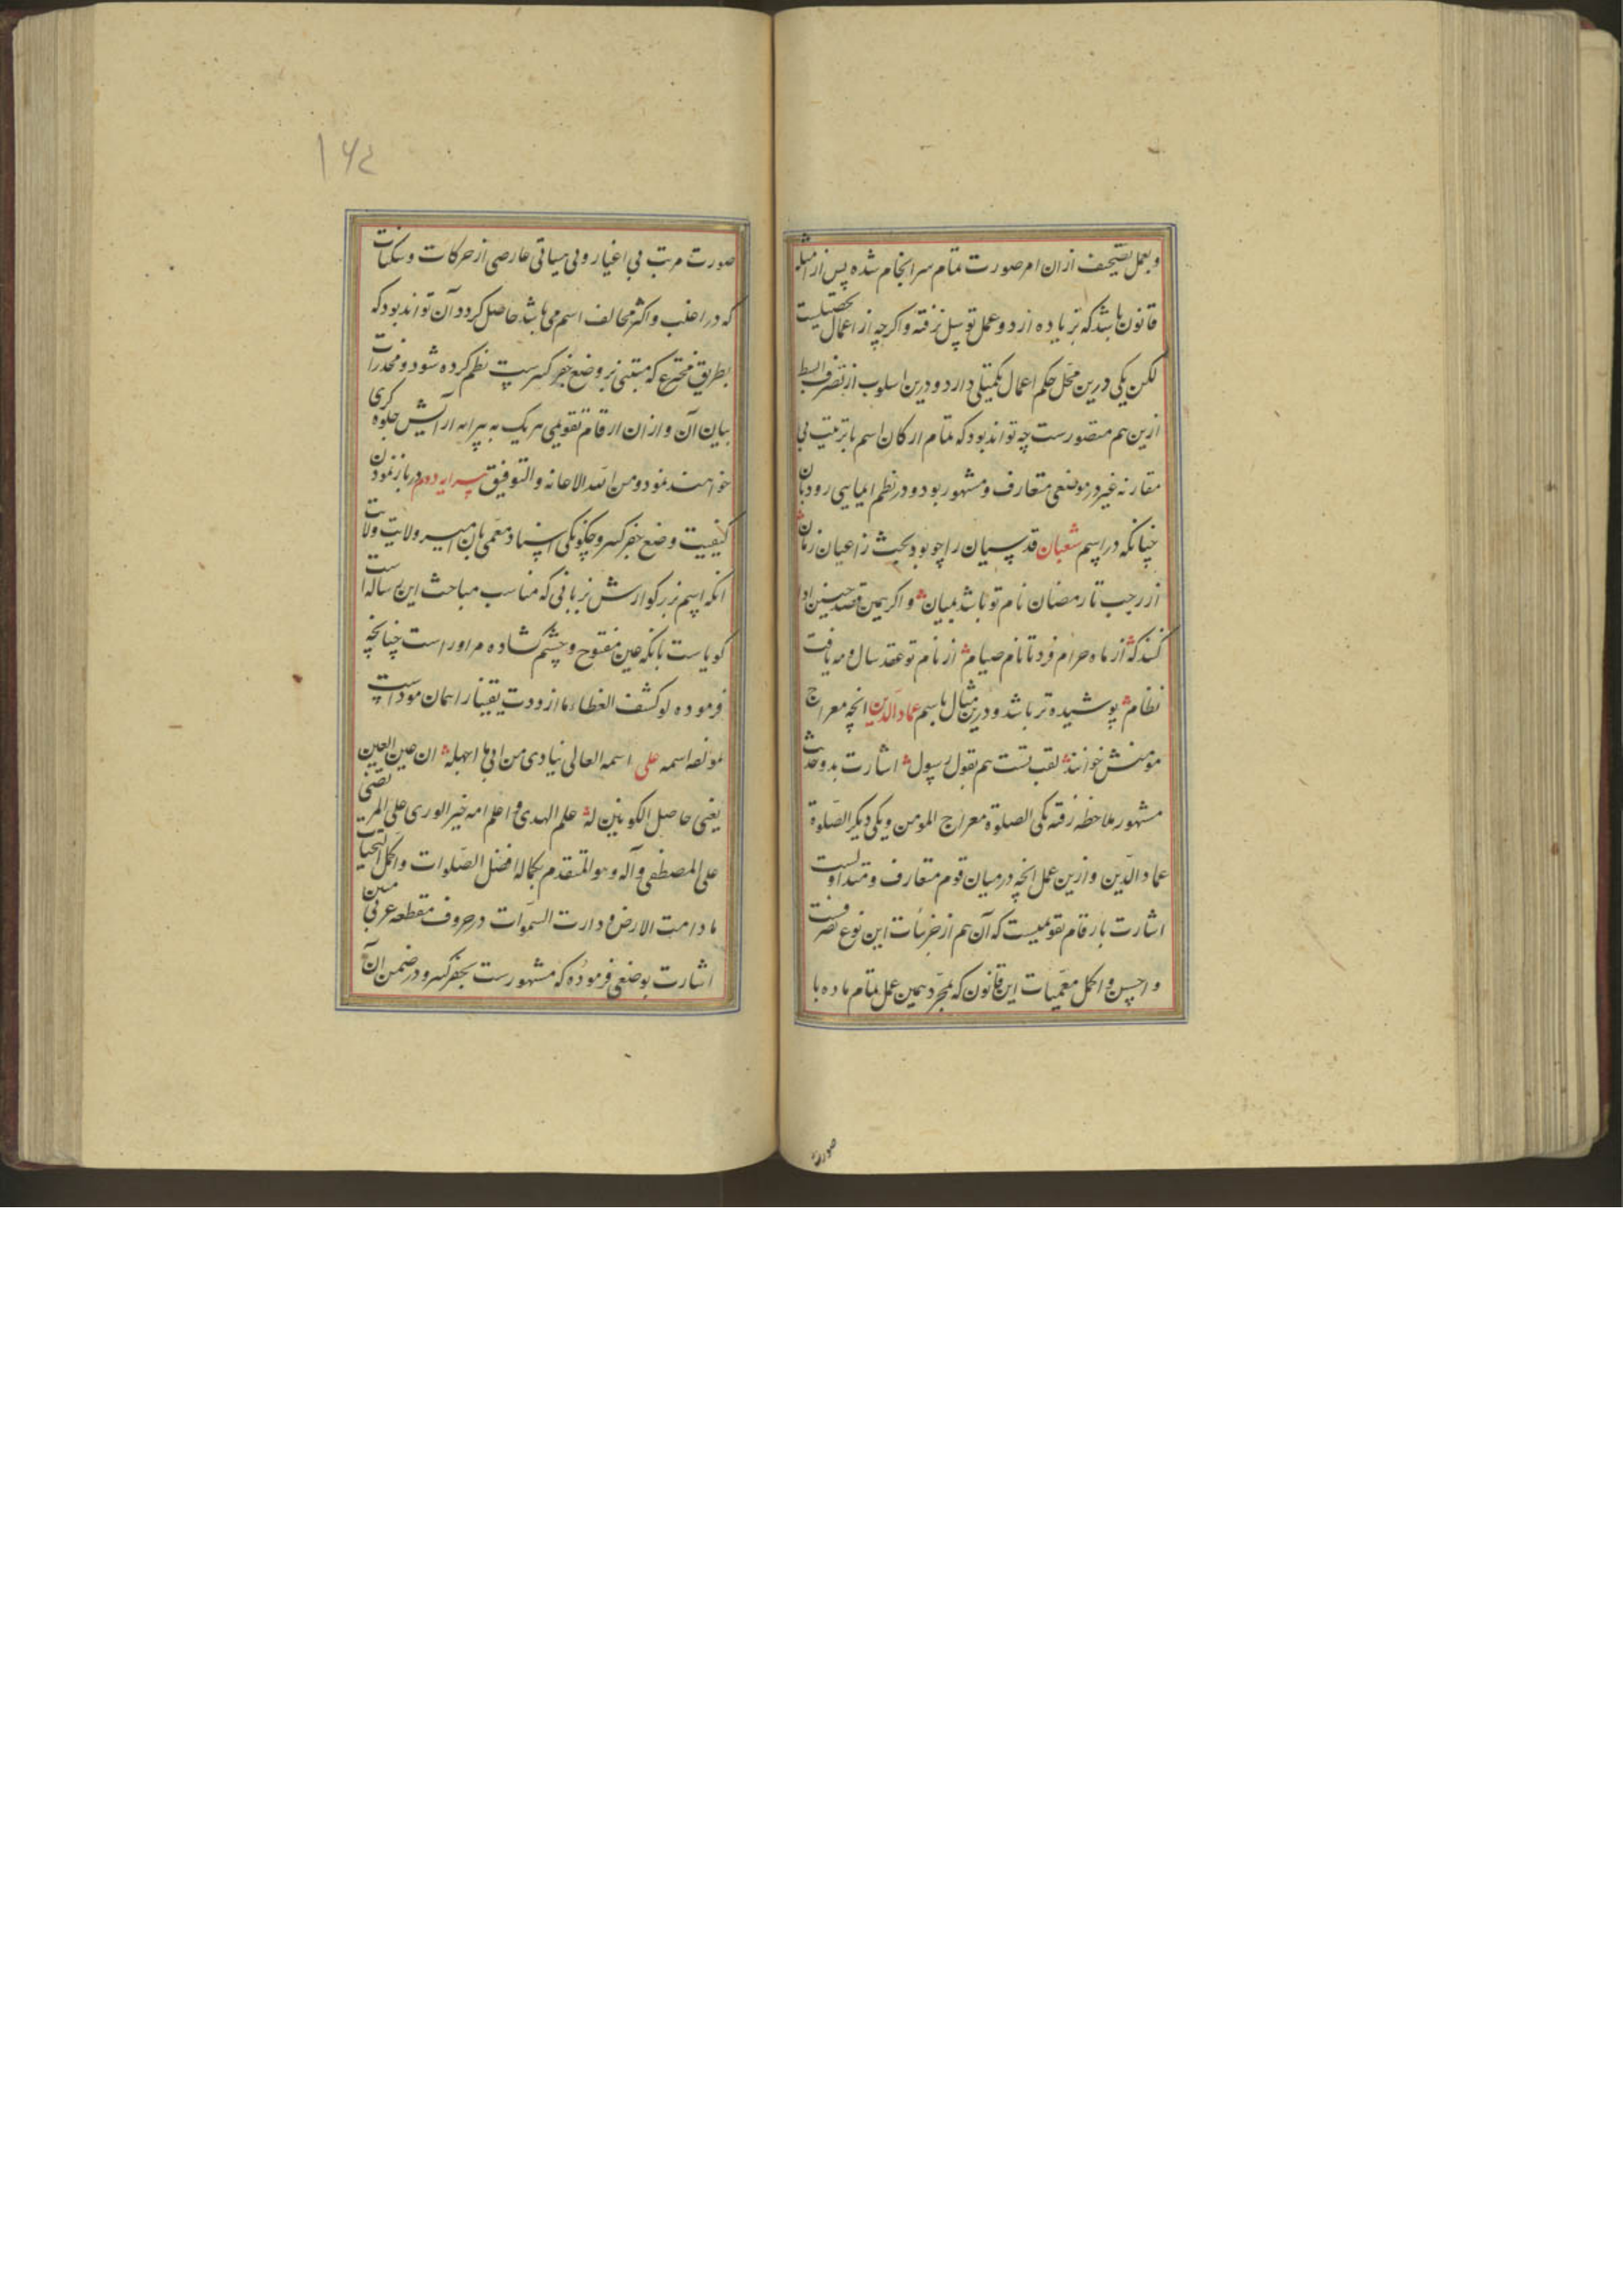 وبعمل تصحیف ازان امر صورت تمام سرانجام شده پس از امثله
قانون باشد که بزیاده از دو عمل توسل نرفته و اکرچه از اعمال تحصیلیست
لکن یکی درین محل حکم اعمال تکمیلی دارد و درین اسلوب از تصرف ابسط
ازین هم متصورست چه تواند بود که تمام ارکان اسم با ترتیب بی
مقارنه غیر در موضعی متعارف و مشهور بود و در نظم ایمایی رود بان
چنانکه در اسم شعبان قدسیان را چو بود بحث ز اعیان زمان
از رجب تا رمضان نام تو باشد بمیان و اکر همین قصد چنین ادا
کنند که از ماه حرام فرد تا نام صیام از نام تو عقد سال و مه یافت
نظام پوشیده تر باشد و درین مثال باسم عماد الدین انچه معراج
مومنش خوانند لقب تست هم بقول رسول اشارت بدو حدیث
مشهور ملاحظه رفته یکی الصلوة معراج المومن و یکی دیکر الصلوة
عماد الدین و ازین عمل انچه در میان قوم متعارف و متداولست
اشارت بارقام تقویمیست که آن هم از جزئیات این نوع تصرفست
و احسن و اکمل معمیات این قانون که بمجرد همین عمل تمام ماده با
صورت
۱۶۲
صورت مرتب بی اغیار و بی هیاتی عارضی از حرکات و سکنات
که در اغلب و اکثر مخالف اسم می باشد حاصل کردد آن تواند بود که
بطریق مخترع که مبتنی بر وضع جفر کسرست نظم کرده شود و مخدرات
بیان آن و ازان ارقام تقویمی هر یک به پیرایه آرایش جلوه کری
خواهند نمود و من الله الاعانه و التوفیق پیرایه دوم در باز نمودن
کیفیت وضع جفر کسر و چکونکی اسناد معمی بان امیر ولایت ولایت
انکه اسم بزرکوارش بزبانی که مناسب مباحث این رساله است
کویاست بانکه عین مفتوح و چشم کشاده مر اوراست چنانچه
فرموده لو کشف الغطاء ما ازددت یقینا را همان موداست
لمولفه اسمه علی اسمه العالی ینادی من ابی بها اجهله ان عین العین
یعنی حاصل الکونین له علم الهدی و اعلم امه خیر الوری علی المرتضی
علی المصطفی و آله و هو المتقدم بکماله افضل الصلوات و اکمل التحیات
ما دامت الارض و دارت السموات در حروف مقطعه عربی مبین
اشارت بوضعی فرموده که مشهورست بجفر کسر و در ضمن آن